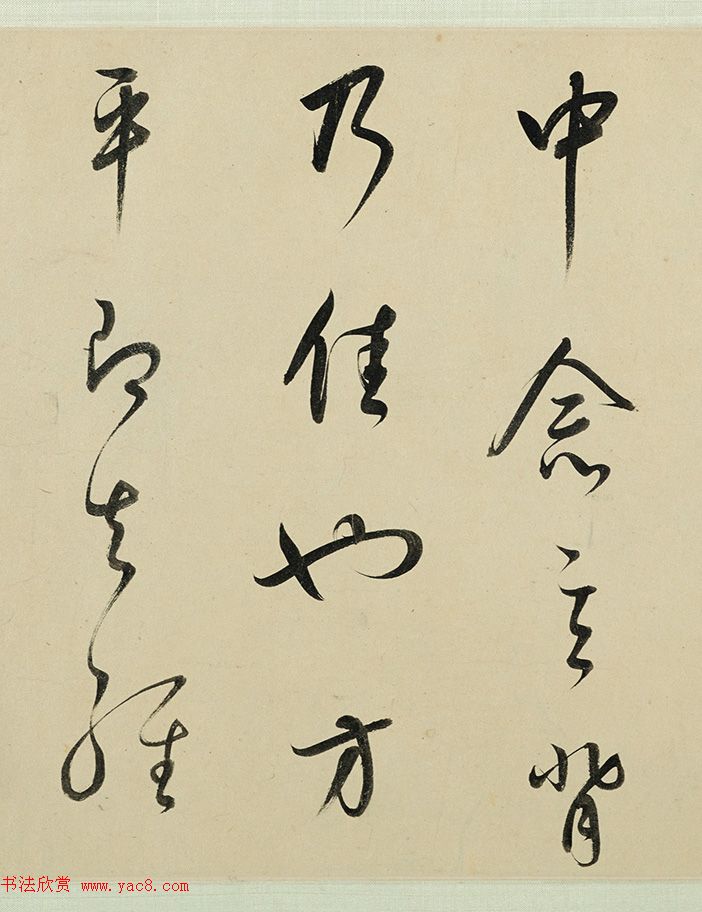 中念言背
乃佳也方
平即知經
书法欣赏 www.yac8.com